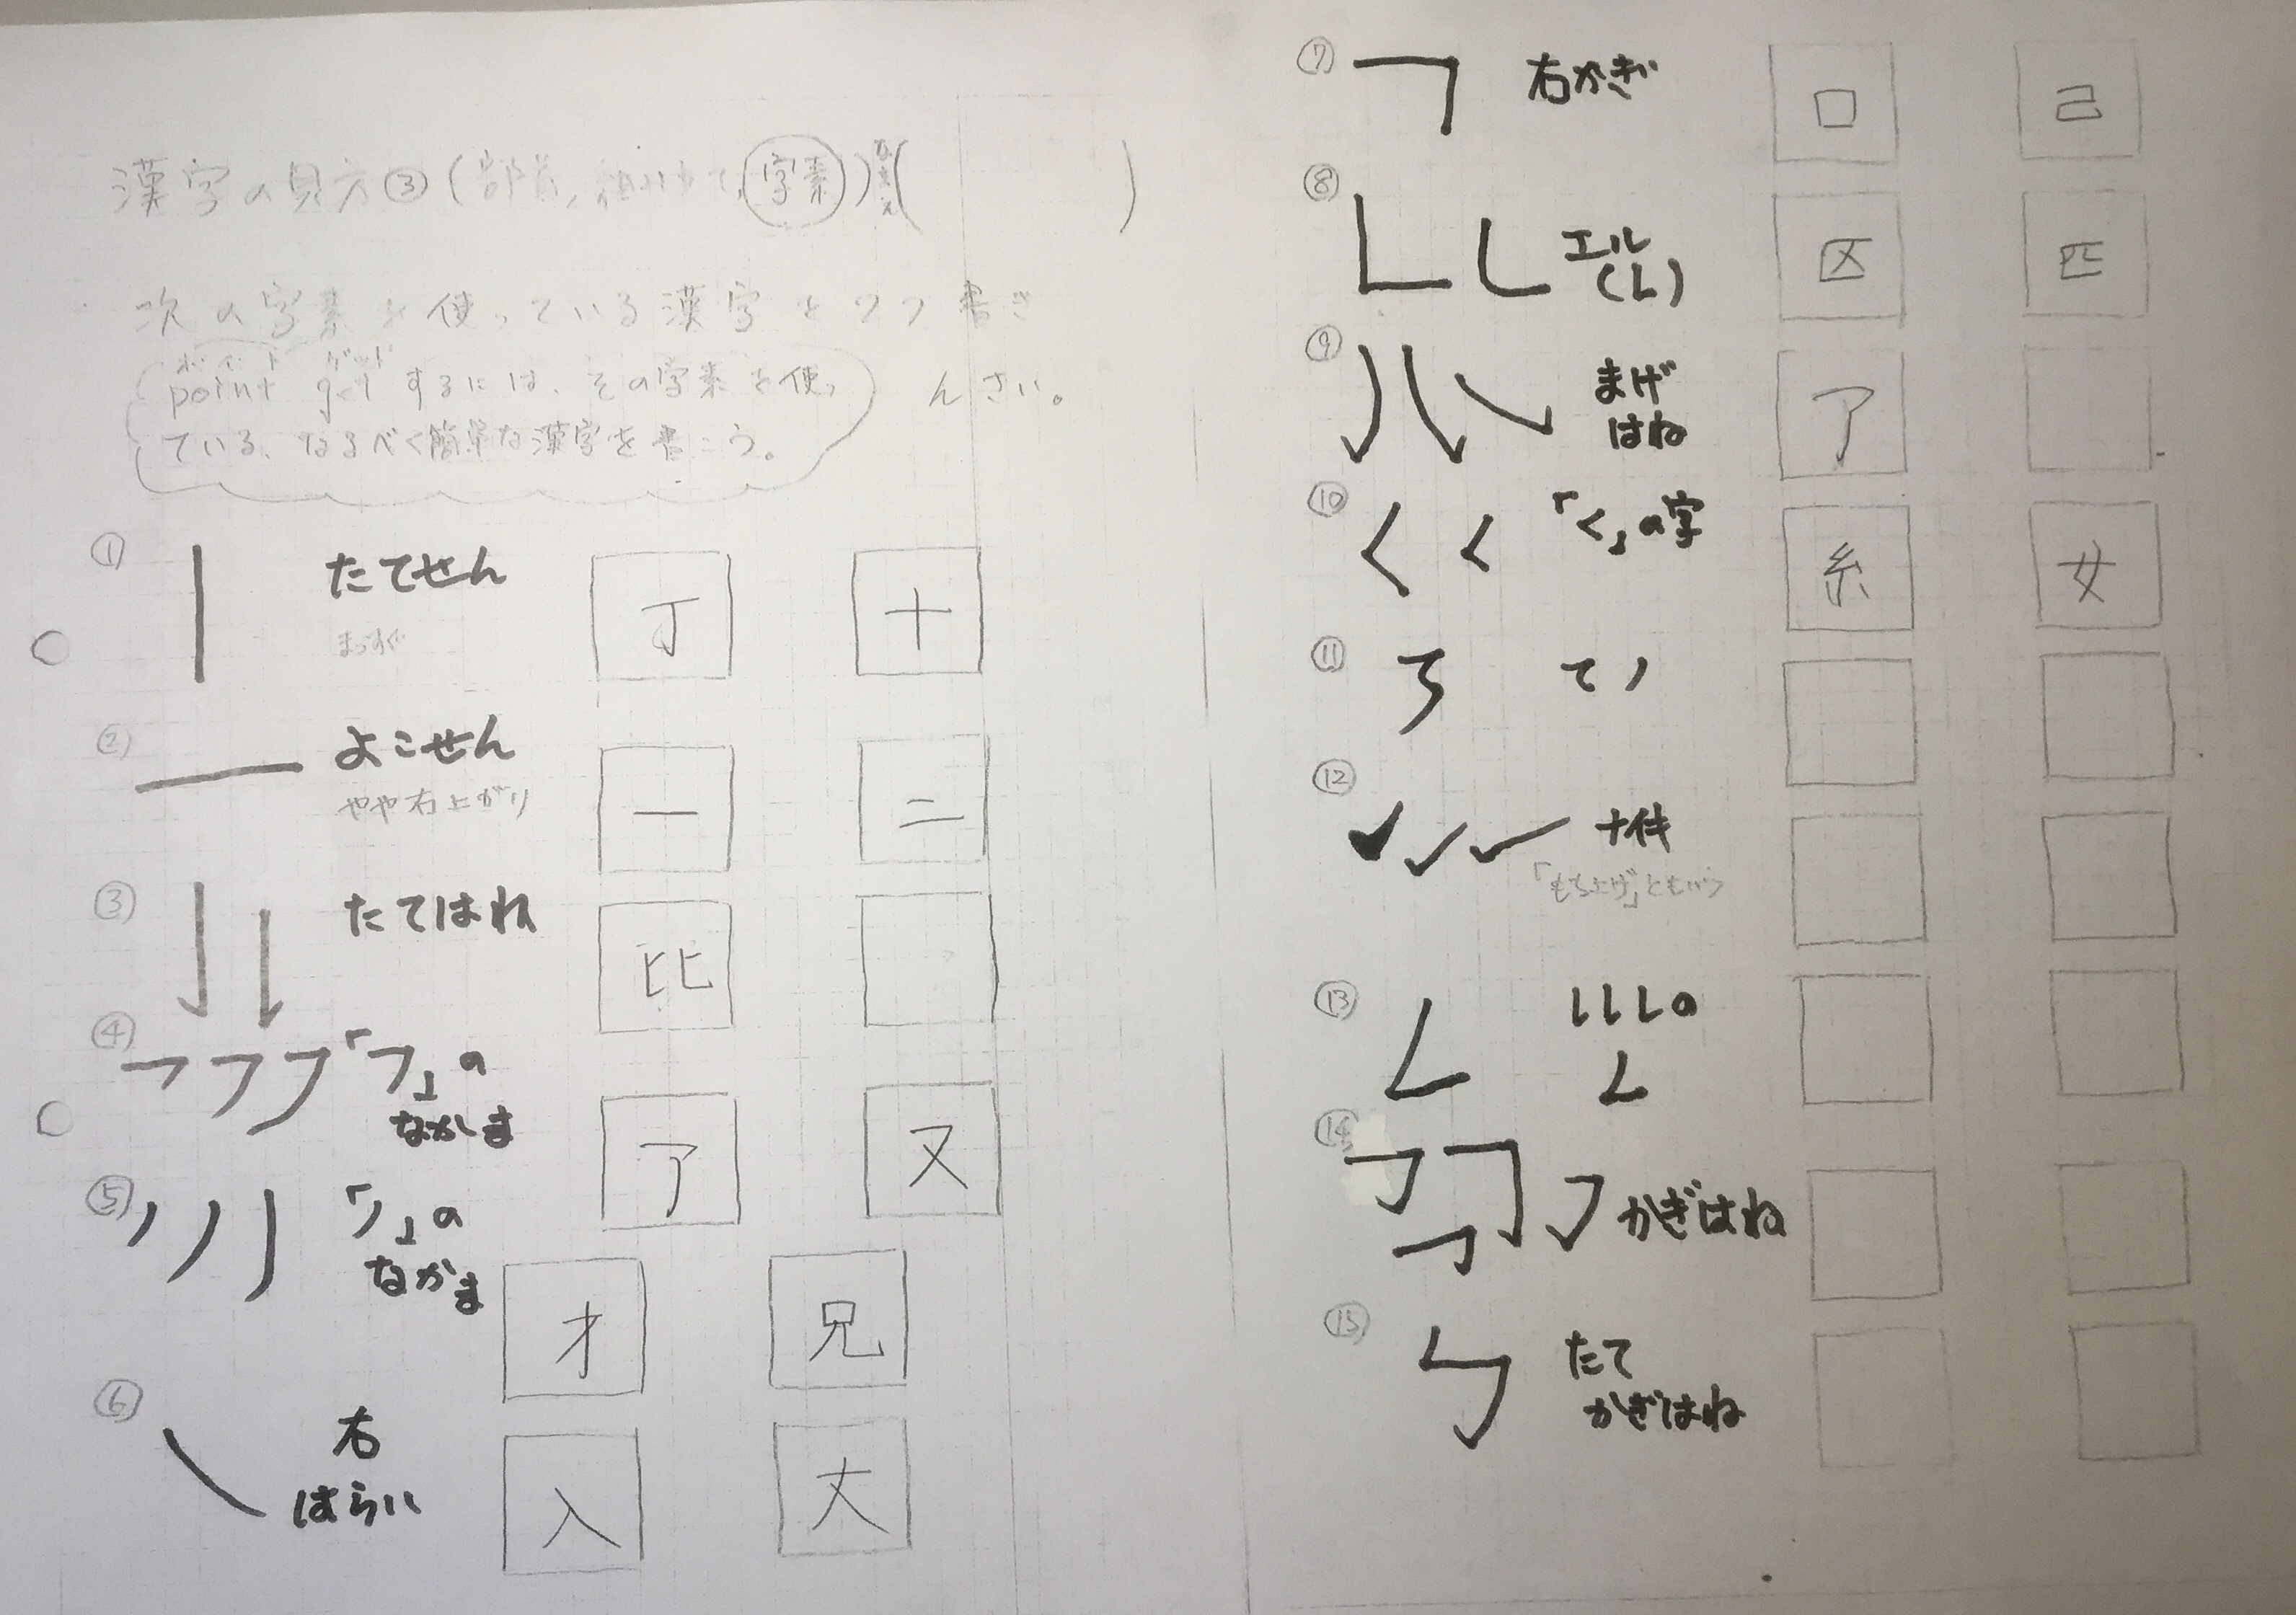 漢字の見方③(部首, 組み立て, 字素) 名まえ( )
次の字素を使っている漢字を2つ書き
んさい。
ポイント ゲット
point getするには、その字素を使っ
ている、なるべく簡単な漢字を書こう。
① たてせん 丁 十
まっすぐ
② よこせん 一 二
やや右上がり
③ たてはね 比
④ フフフ「フ」の
なかま 了 又
⑤ ノノノ「ノ」の
なかま 才 兄
⑥ 右
はらい 入 丈
⑦ 右かぎ 口 己
⑧ エル
(L) 区 匹
⑨ まげ
はね 了
⑩ くく「く」の字 糸 女
⑪ てノ
⑫ ナイキ
「もち上げ」ともいう
⑬ レレレの
レ
⑭ かぎはね
⑮ たて
かぎはね